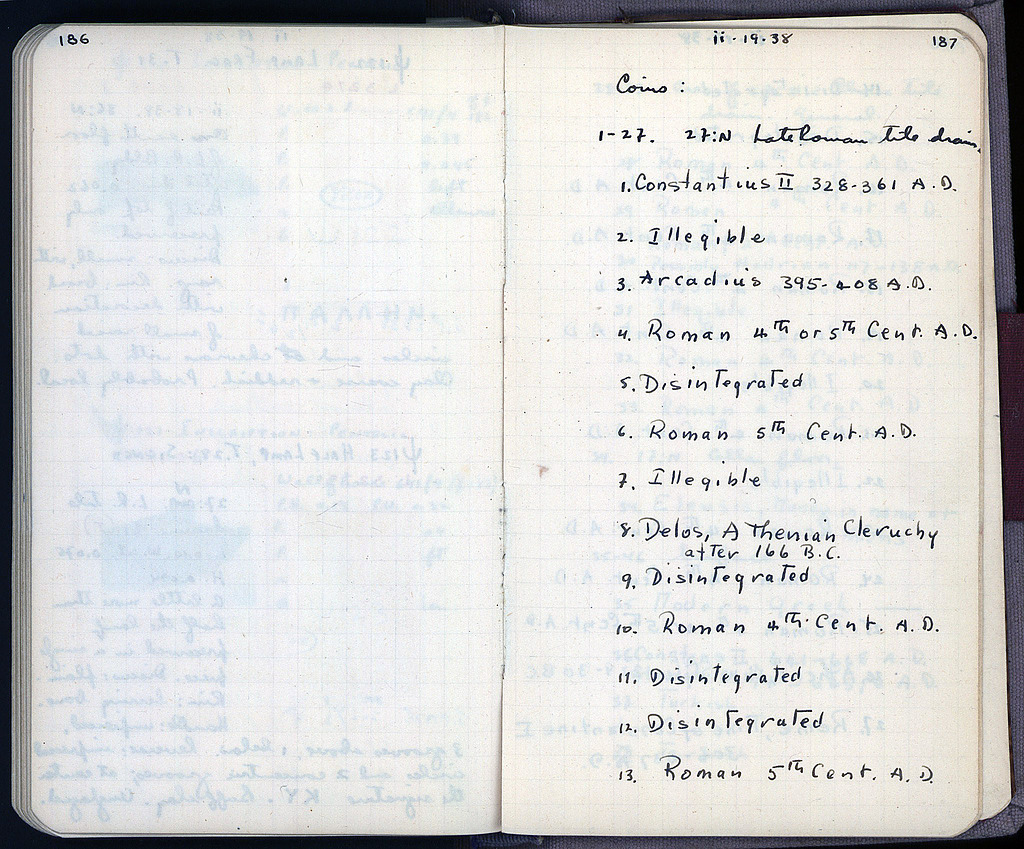 186
ii·19·38
187
Coins:
1-27. 27:N Late Roman tile drain.
1. Constantius II 328-361 A.D.
2. Illegible
3. Arcadius 395-408 A.D.
4. Roman 4th or 5th Cent. A.D.
5. Disintegrated
6. Roman 5th Cent. A.D.
7. Illegible
8. Delos, Athenian Cleruchy
after 166 B.C.
9. Disintegrated
10. Roman 4th Cent. A.D.
11. Disintegrated
12. Disintegrated
13. Roman 5th Cent. A.D.